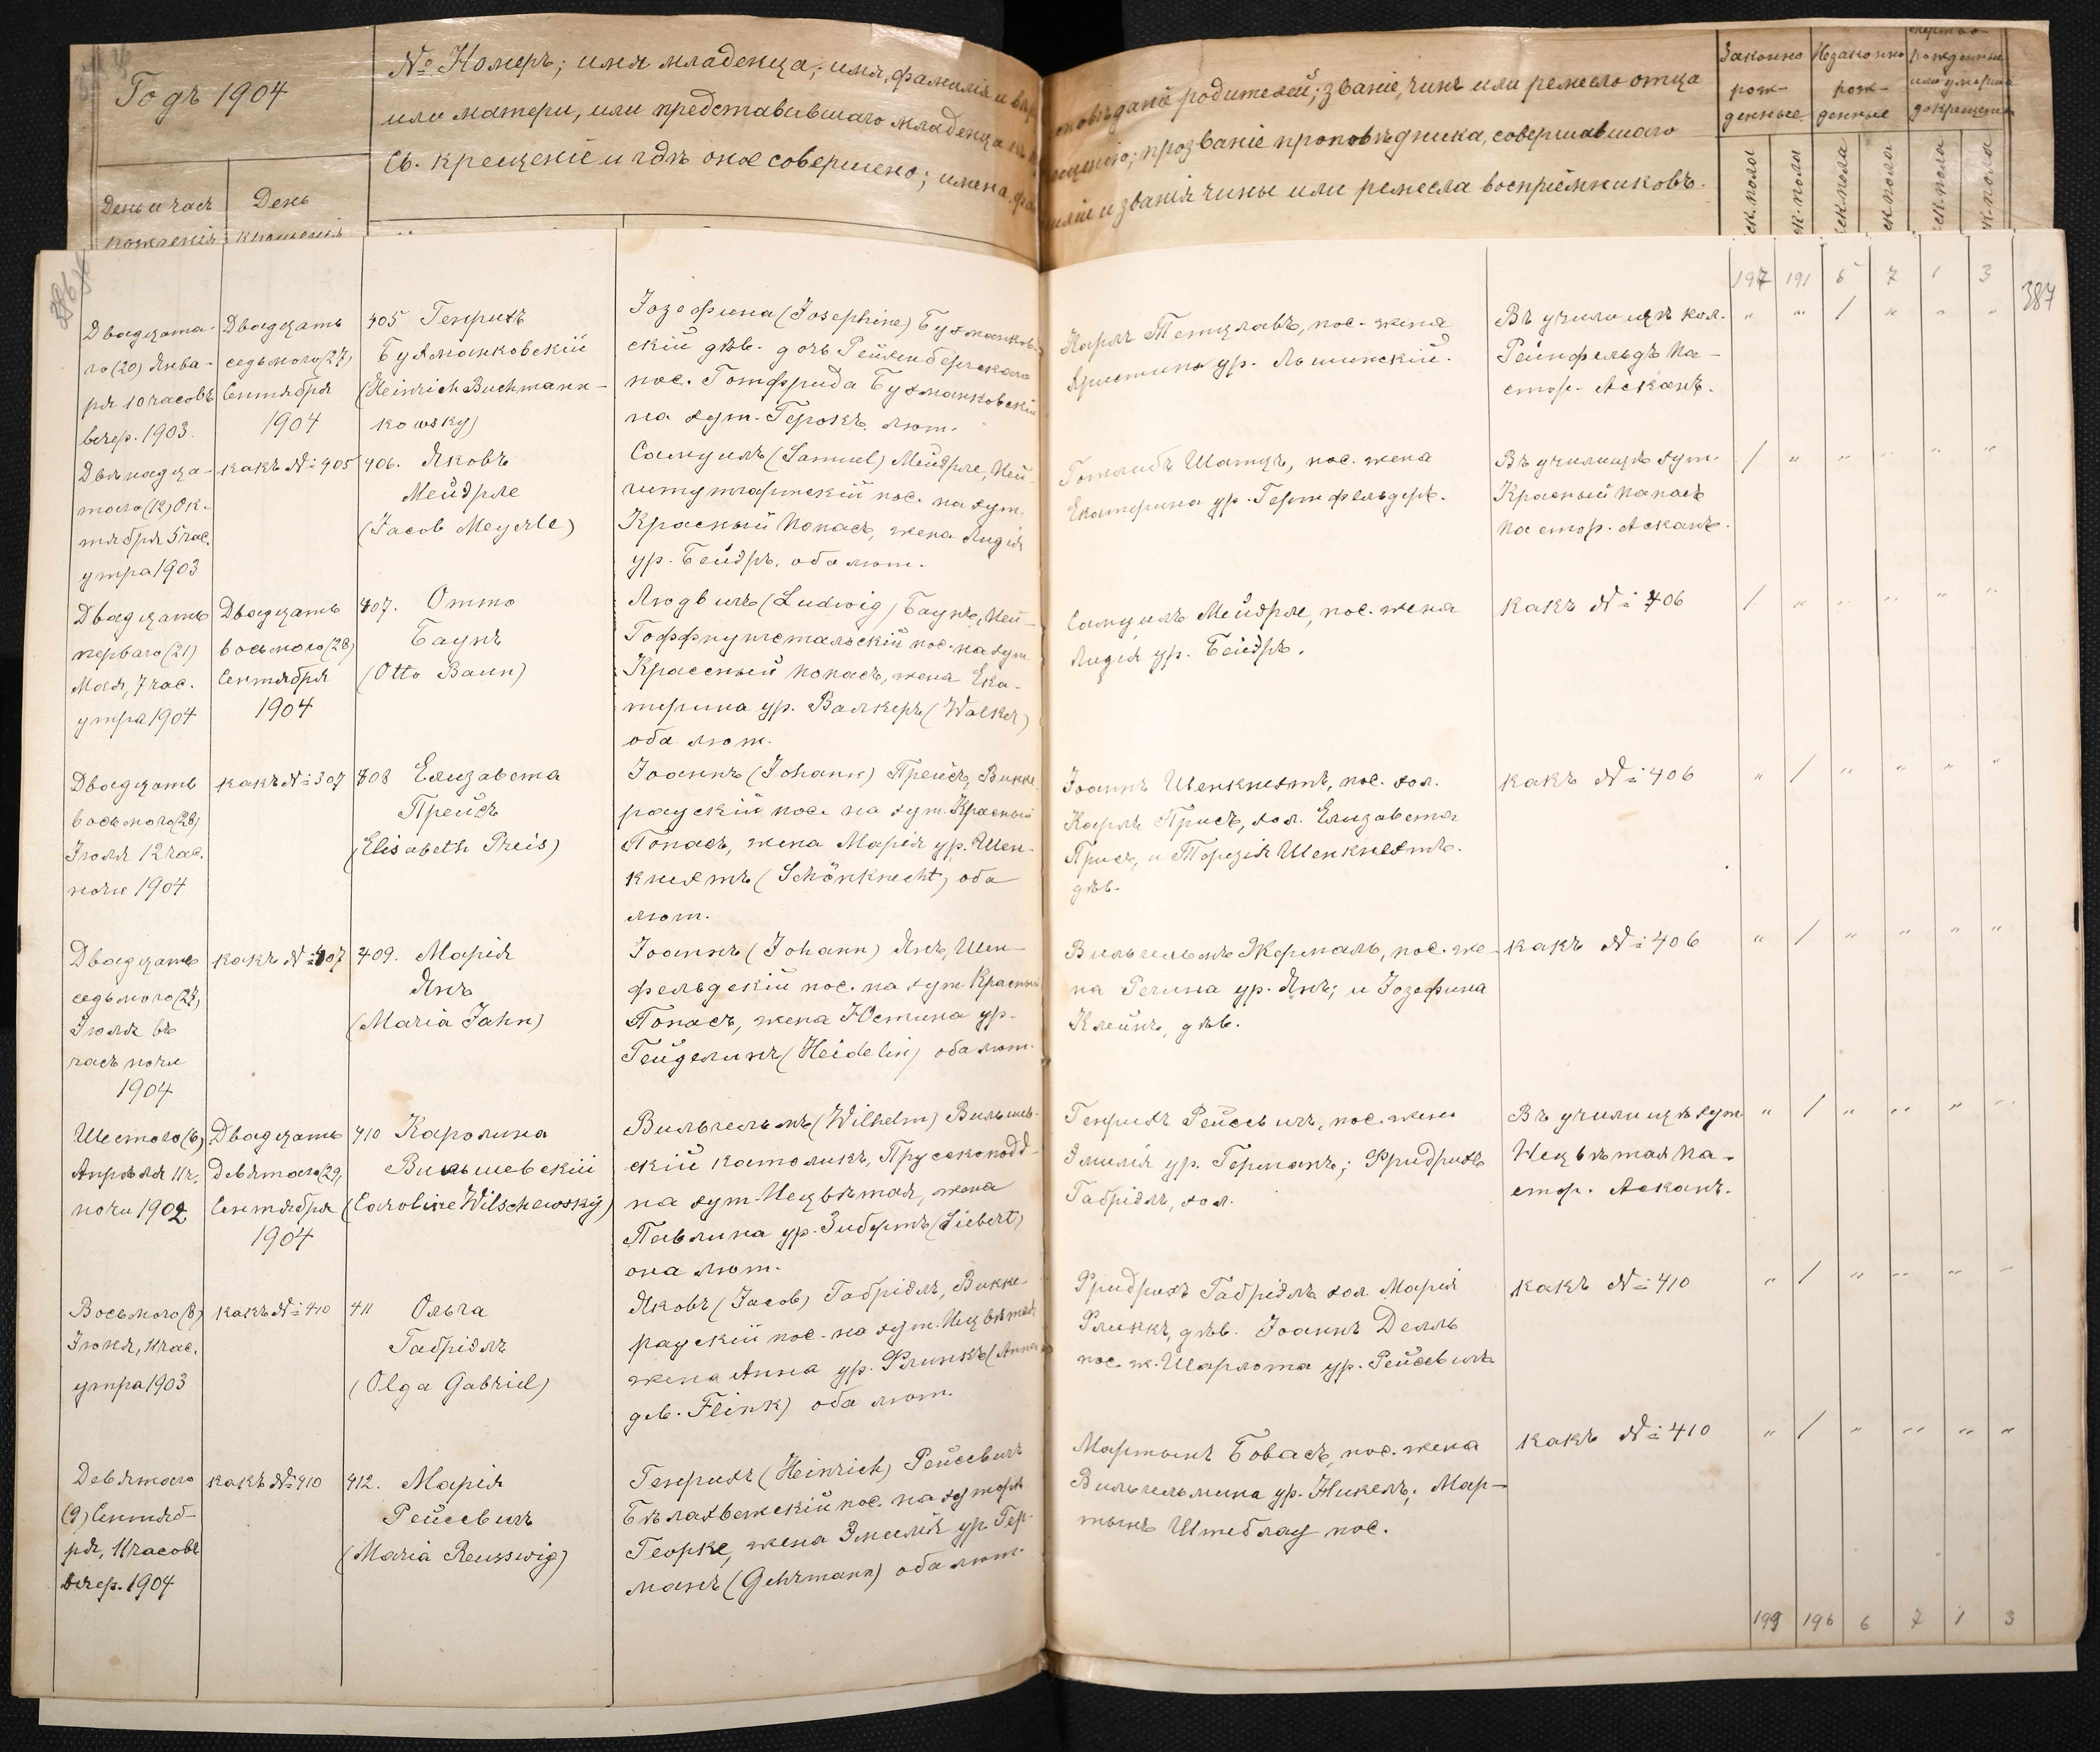 Годъ 1904
№ Номеръ; имя младенца; имя, фамилія и вѣроисповѣданіе родителей; званіе, чинъ или ремесло отца
или матери, или представившаго младенца къ крещенію; прозваніе проповѣдника, совершившаго
Св. крещеніе и гдѣ оное совершено; имена, фамиліи и званія чины или ремесла воспріемниковъ.
День и часъ
рожденія
День
крещенія
Законно
рож-
денные
Незаконно
рож-
денные
мертво-
рожденные
или умершіе
до крещенія
197 191 6 7 1 3
387
Двадцата-
го (20) Янва-
ря 10 часовъ
вечер. 1903.
Двадцать
седьмого (27)
Сентября
1904
405 Генрихъ
Бухманковскій
(Heinrich Buchmann-
kowsky)
Іозефина (Josephine) Бухманков-
скій дѣв. дочь Рейхенбергскаго
пос. Готфрида Бухманковскій
на хут. Герокъ. лют.
Карлъ Тетцлавъ, пос. жена
Христина ур. Лошинскій.
Въ училищѣ кол.
Рейнфельдъ Па-
стор. Асканъ.
" " / " " "
Двѣнадца-
таго (12) Ок-
тября 5 час.
утра 1903
какъ № 405
406. Яковъ
Мейэрле
(Jacob Meyerle)
Самуилъ (Samuel) Мейэрле, Ней-
штутгартскій пос. на хут.
Красный Попасъ, жена Лидія
ур. Бейэръ. оба лют.
Готлибъ Шатцъ, пос. жена
Екатерина ур. Гертфельдеръ.
Въ училищѣ хут.
Красный Попасъ
Пастор. Асканъ.
/ " " " " "
Двадцать
перваго (21)
Мая, 7 час.
утра 1904
Двадцать
восьмого (28)
Сентября
1904
407. Отто
Баунъ
(Otto Baun)
Людвигъ (Ludwig) Баунъ, Ней-
Гоффнунгстальскій пос. на хут.
Красный Попасъ, жена Ека-
терина ур. Валкеръ (Walker)
оба лют.
Самуилъ Мейэрле, пос. жена
Лидія ур. Бейэръ.
какъ № 406
/ " " " " "
Двадцать
восьмого (28)
Іюля 12 час.
ночи 1904
какъ № 307
408 Елизавета
Прейсъ
(Elisabeth Preis)
Іоаннъ (Johann) Прейсъ, Викке-
раускій пос. на хут. Красный
Попасъ, жена Марія ур. Шен-
кнехтъ (Schönknecht) оба
лют.
Іоаннъ Шенкнехтъ, пос. хол.
Карлъ Присъ, хол. Елизавета
Присъ, и Терезія Шенкнехтъ.
дѣв.
какъ № 406
" / " " " "
Двадцать
седьмого (27)
Іюля въ
часъ ночи
1904
какъ № 407
409. Марія
Янъ
(Maria Jahn)
Іоаннъ (Johann) Янъ, Шен-
фельдскій пос. на хут. Красный
Попасъ, жена Юстина ур.
Гейделинъ (Heidelin) оба лют.
Вильгельмъ Жермалъ, пос. же-
на Регина ур. Янъ; и Іозефина
Клейнъ, дѣв.
какъ № 406
" / " " " "
Шестого (6)
Апрѣля 11 ч.
ночи 1902
Двадцать
Девятаго (29)
Сентября
1904
410 Каролина
Вильшевскій
(Caroline Wilschewsky)
Вильгельмъ (Wilhelm) Вильшев-
скій католикъ, Прусскоподд.
на хут. Нецвѣтая, жена
Павлина ур. Зибертъ (Siebert)
она лют.
Генрихъ Рейсвигъ, пос. жена
Эмилія ур. Германъ; Фридрихъ
Габріэлъ, хол.
Въ училищѣ хут.
Нецвѣтая Па-
стор. Асканъ.
" / " " " "
Восьмого (8)
Іюня, 11 час.
утра 1903
какъ № 410
411 Ольга
Габріэлъ
(Olga Gabriel)
Яковъ (Jacob) Габріэлъ, Викке-
раускій пос. на хут. Нецвѣтая
жена Анна ур. Флинкъ (Anna
geb. Flink) оба лют.
Фридрихъ Габріэлъ хол. Марія
Флинкъ, дѣв. Іоаннъ Делль
пос. ж. Шарлота ур. Рейсвигъ
какъ № 410
" / " " " "
Девятаго
(9) Сентяб-
ря, 11 часовъ
вечер. 1904
какъ № 410
412. Марія
Рейсвигъ
(Maria Reusswig)
Генрихъ (Heinrich) Рейсвигъ
Бѣлахвежскій пос. на хуторѣ
Георке, жена Эмилія ур. Гер-
манъ (Gehrmann) оба лют.
Мартынъ Бовасъ, пос. жена
Вильгельмина ур. Никелъ; Мар-
тынъ Штеблау пос.
какъ № 410
" / " " " "
199 196 6 7 1 3